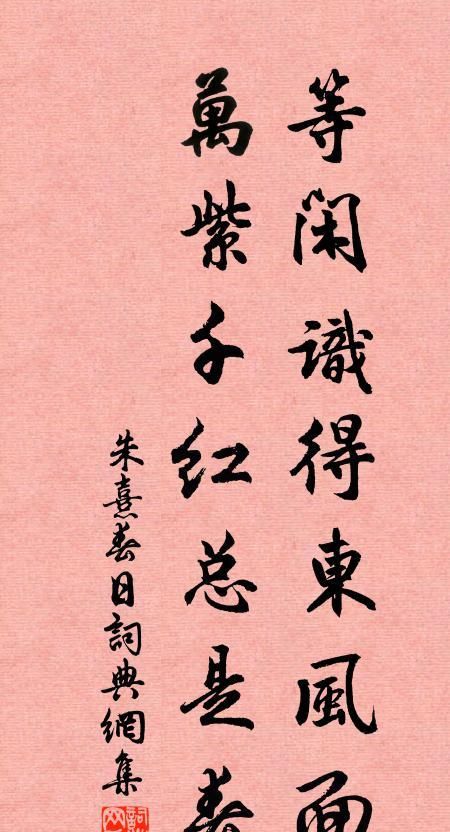 等閑識得東風面
萬紫千红总是春
朱熹春日詞典網集